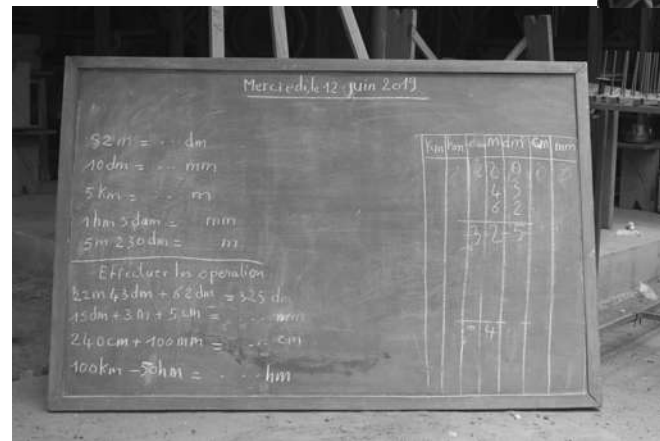 Mercredi, le 12 juin 2019
82m = ... dm
10dm = ... mm
5km = ... m
1hm 5dam = mm
5m 230dm = m
Effectuer les operation
22m 43dm + 62dm = 325 dm
15dm + 3m + 5cm = ... mm
240cm + 100mm = ... cm
100km - 50hm = ... hm
Km hm dam m dm cm mm
2 2 0
4 3
6 2
3 2 5
4